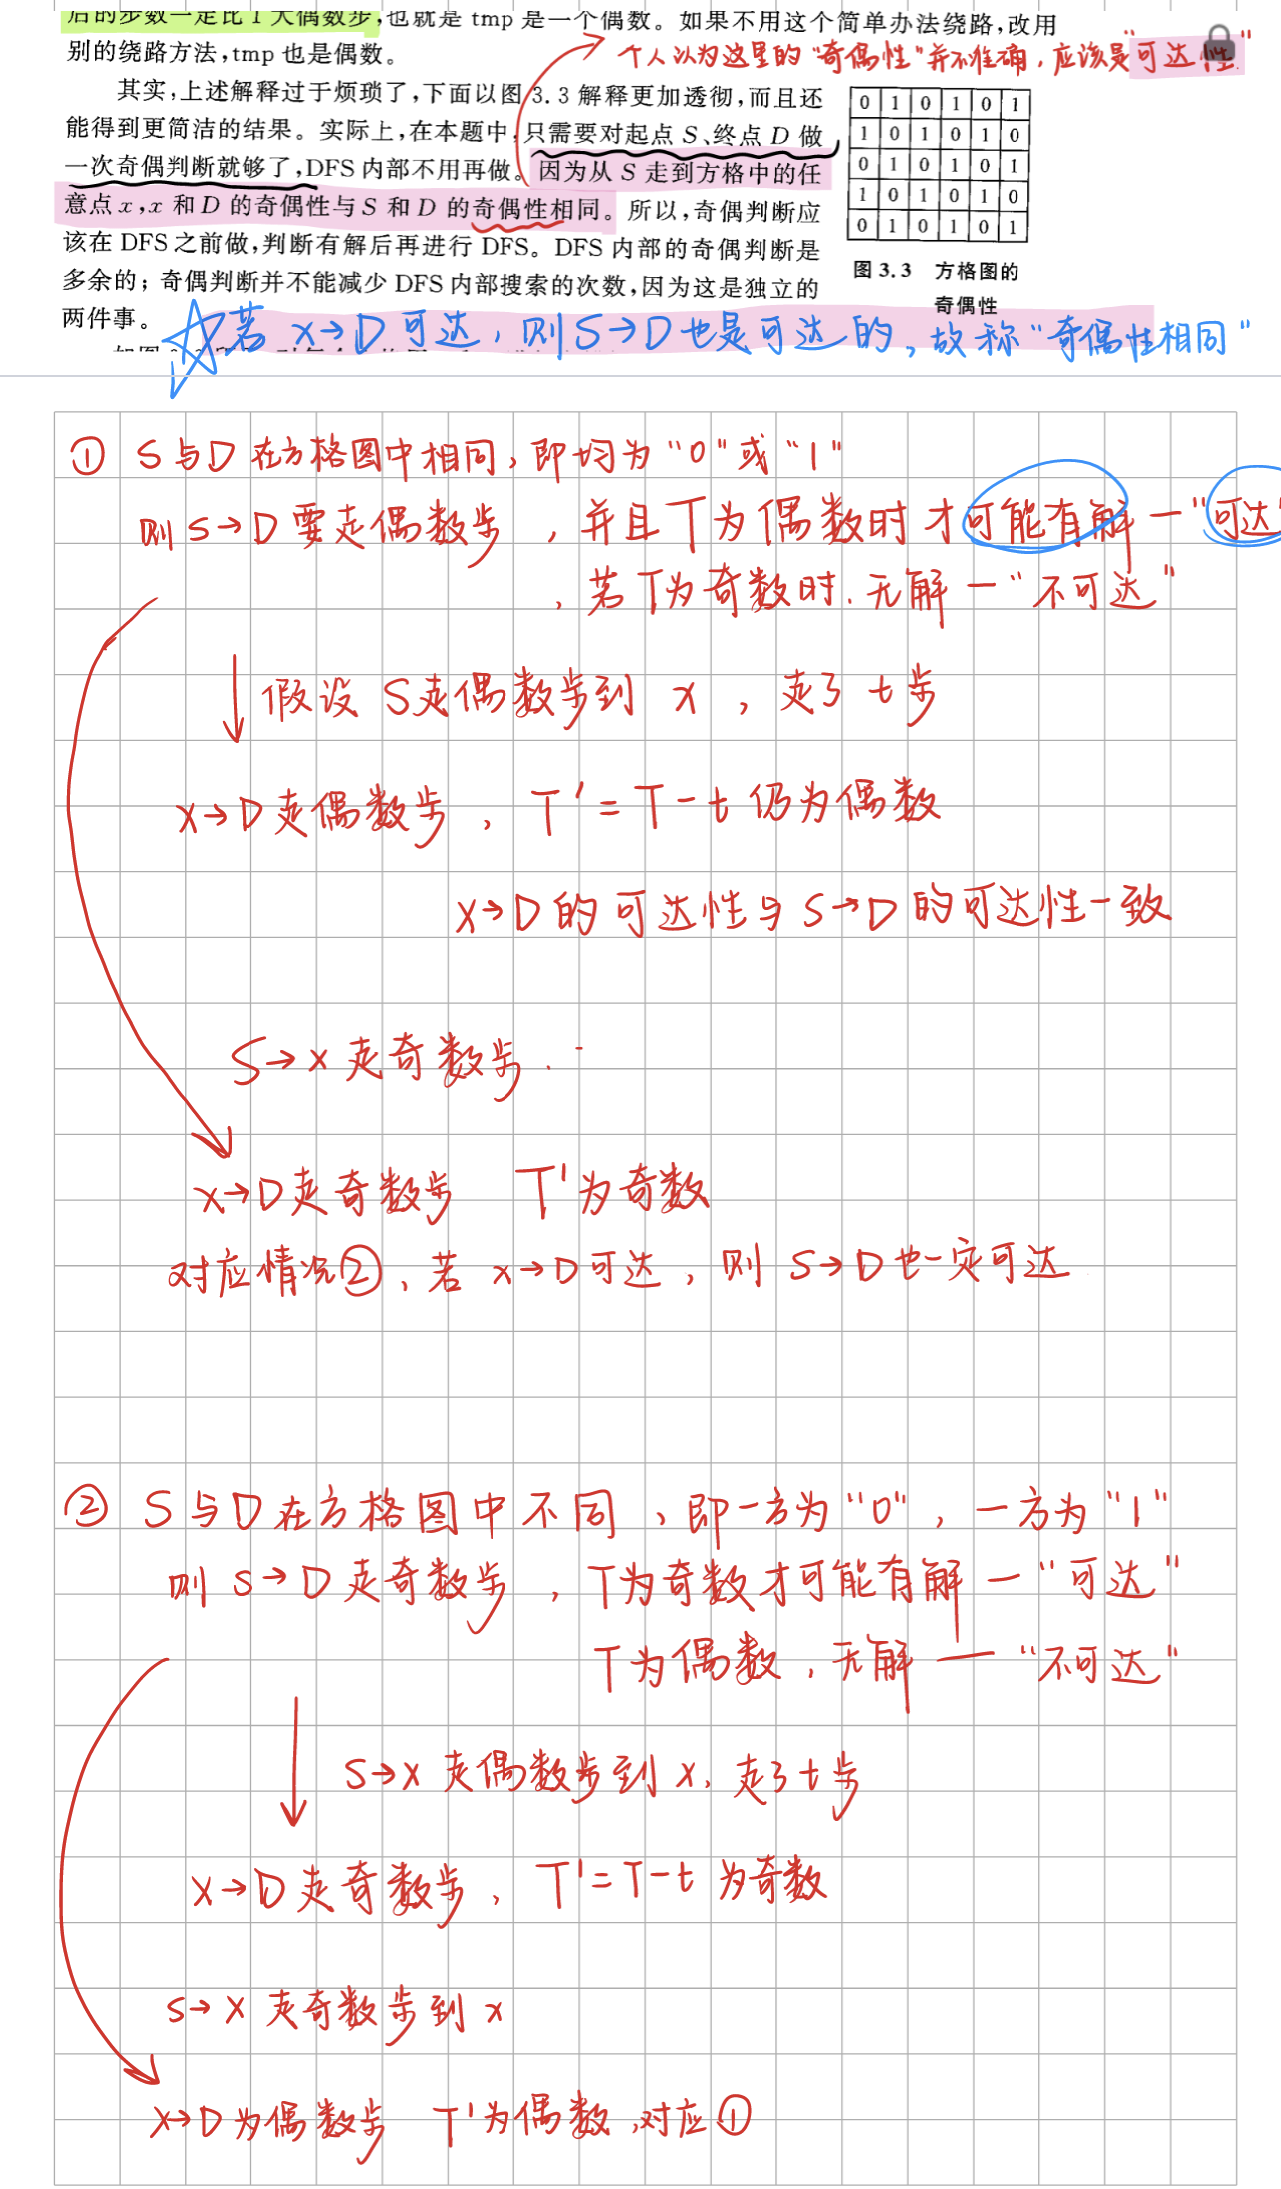 后的步数一定比 1 大偶数步,也就是 tmp 是一个偶数。如果不用这个简单办法绕路,改用
别的绕路方法,tmp 也是偶数。
个人认为这里的“奇偶性”并不准确,应该是“可达性”
其实,上述解释过于烦琐了,下面以图 3.3 解释更加透彻,而且还
能得到更简洁的结果。实际上,在本题中,只需要对起点 S、终点 D 做
一次奇偶判断就够了,DFS 内部不用再做。因为从 S 走到方格中的任
意点 x,x 和 D 的奇偶性与 S 和 D 的奇偶性相同。所以,奇偶判断应
该在 DFS 之前做,判断有解后再进行 DFS。DFS 内部的奇偶判断是
多余的;奇偶判断并不能减少 DFS 内部搜索的次数,因为这是独立的
两件事。
0 1 0 1 0 1
1 0 1 0 1 0
0 1 0 1 0 1
1 0 1 0 1 0
0 1 0 1 0 1
图 3.3 方格图的
奇偶性
若 x→D 可达,则 S→D 也是可达的,故称“奇偶性相同”
① S与D在方格图中相同,即均为“0”或“1”
则 S→D 要走偶数步,并且T为偶数时才可能有解一“可达”
,若T为奇数时.无解一“不可达”
假设 S走偶数步到 x,走了 t步
x→D 走偶数步,T'=T-t仍为偶数
x→D的可达性与S→D的可达性一致
S→x 走奇数步.
x→D走奇数步 T'为奇数
对应情况②,若 x→D可达,则 S→D也一定可达
② S与D在方格图中不同,即一方为“0”,一方为“1”
则 S→D 走奇数步,T为奇数才可能有解一“可达”
T为偶数,无解一“不可达”
S→x 走偶数步到 x.走了t步
x→D走奇数步,T'=T-t 为奇数
S→x 走奇数步到 x
x→D为偶数步 T'为偶数,对应①